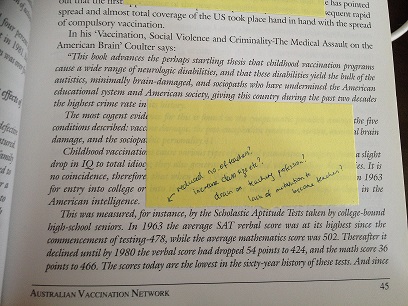 out that the first
has pointed
sequent rapid
spread and almost total coverage of the US took place hand in hand with the spread
of compulsory vaccination.
In his ‘Vaccination, Social Violence and Criminality-The Medical Assault on the
American Brain’ Coulter says:
“This book advances the perhaps startling thesis that childhood vaccination programs
cause a wide range of neurologic disabilities, and that these disabilities yield the bulk of the
autistics, minimally brain-damaged, and sociopaths who have undermined the American
educational system and American society, giving this country during the past two decades
the highest crime rate in
The most cogent evid
the five
conditions described: vacc
al brain
damage, and the sociopa
Childhood vaccination
a slight
drop in IQ to total idioc
es. It is
no coincidence, therefore
n 1963
for entry into college or
in the
American intelligence.
reduced no. of teachers?
increase class sizes?
drain on teaching profession?
lack of motivation to
become teachers?
This was measured, for instance, by the Scholastic Aptitude Tests taken by college-bound
high-school seniors. In 1963 the average SAT verbal score was at its highest since the
commencement of testing-478, while the average mathematics score was 502. Thereafter it
declined until by 1980 the verbal score had dropped 54 points to 424, and the math score 36
points to 466. The scores today are the lowest in the sixty-year history of these tests. And since
AUSTRALIAN VACCINATION NETWORK
45